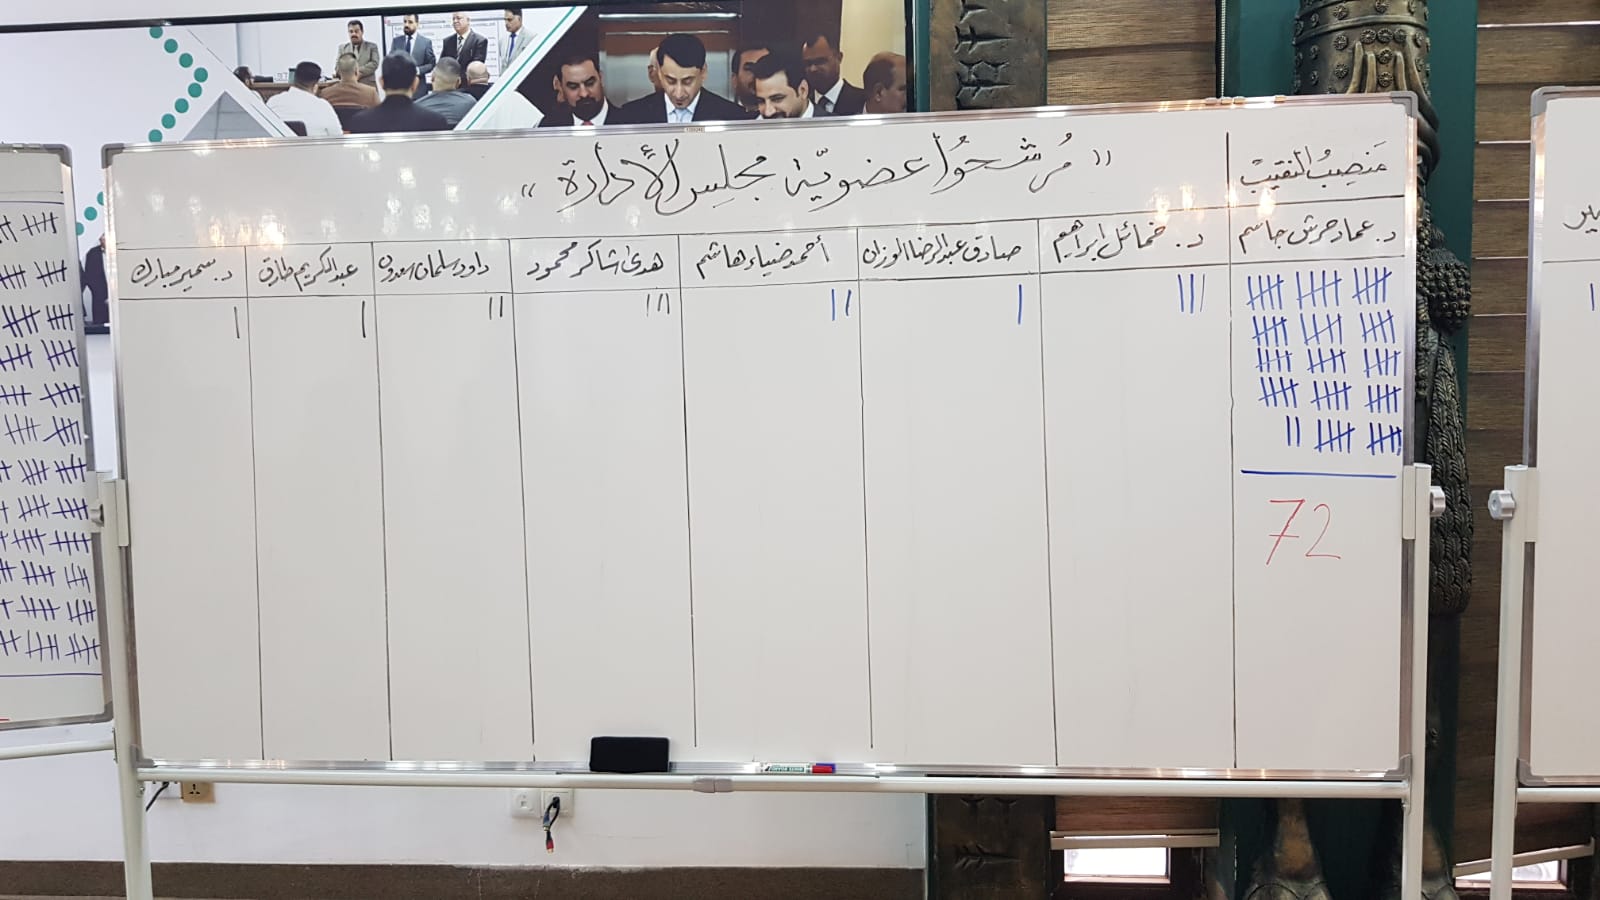 مَنصِبُ النقيبْ
" مُرشحُوا عضويّة مجلِس الأدأرة "
د. عماد حرش جاسم
د. خمائل ابراهيم
صادق عبدالرضا الوزان
أحمد ضياء هاشم
هدى شاكر محمود
داود سلمان سعدون
عبدالكريم طارق
د. سمير مبارك
72